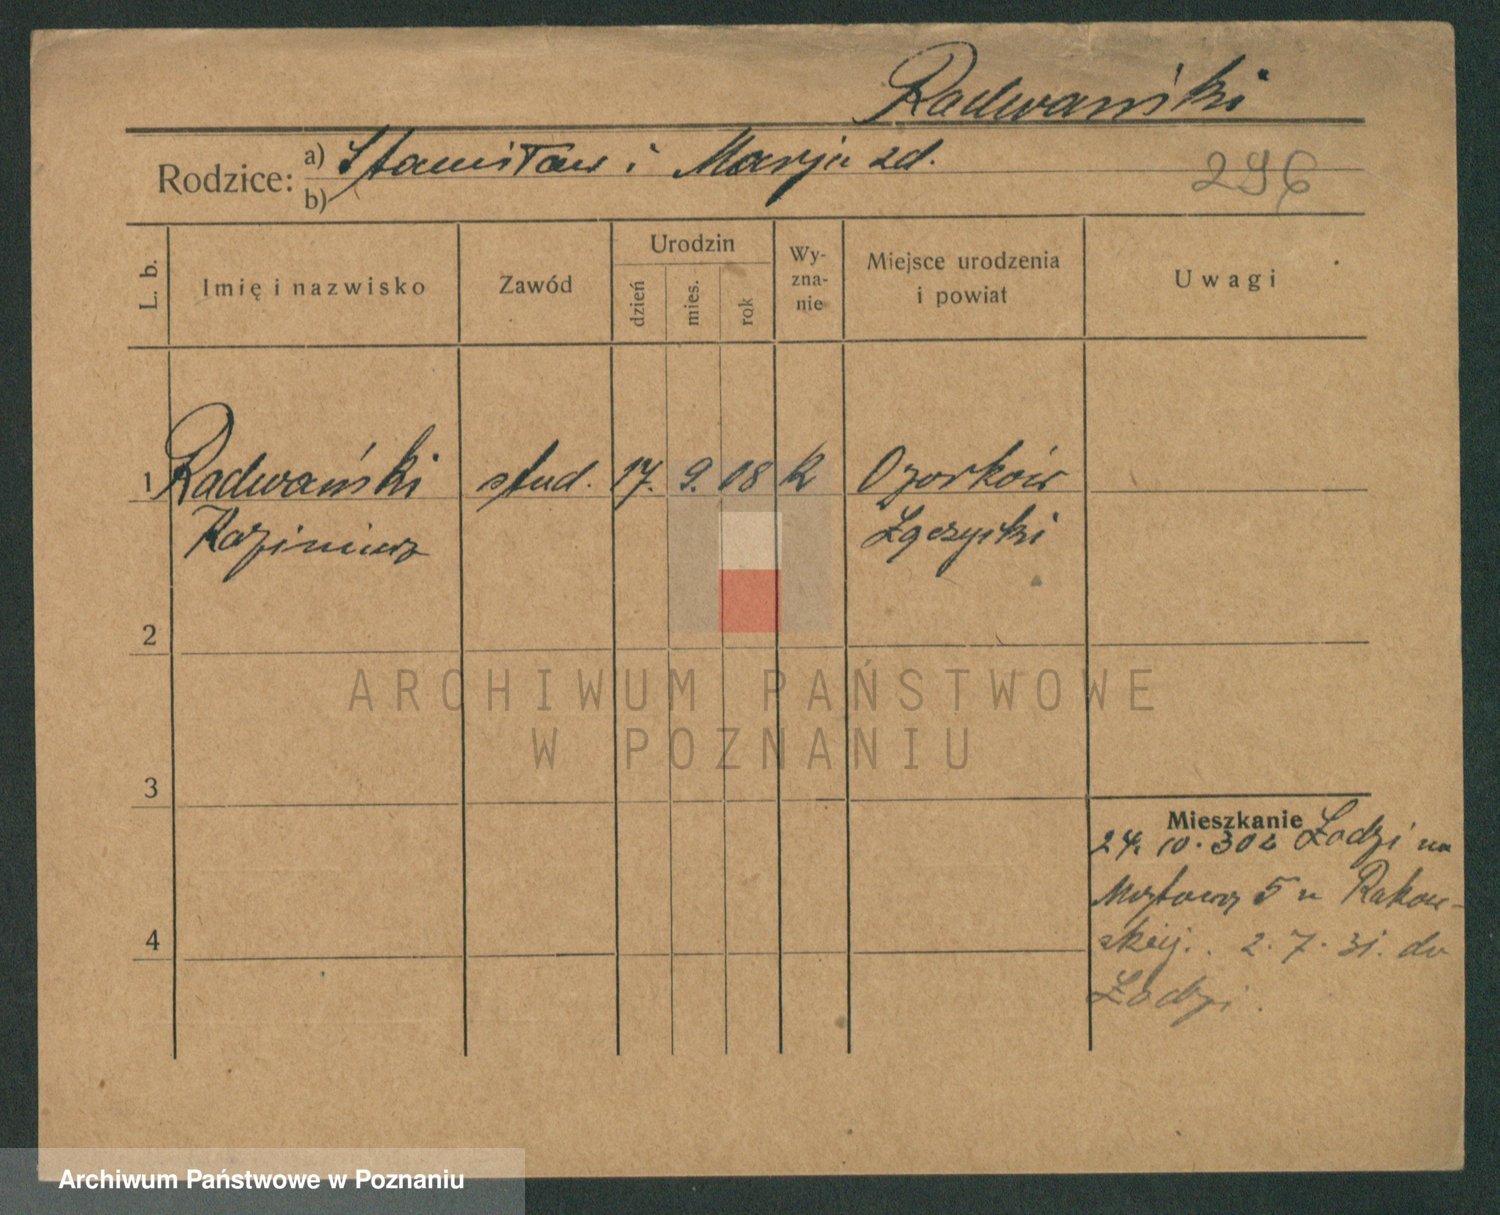 Radwański
Rodzice: a) Stanisław i Marja zd.
b)
296
L. b.
Imię i nazwisko
Zawód
Urodzin
dzień
mies.
rok
Wy-
zna-
nie
Miejsce urodzenia
i powiat
Uwagi
1 Radwański stud. 17. 9. 08 k Ozorków
Kazimierz Łęczycki
2
ARCHIWUM PAŃSTWOWE
W POZNANIU
3
Mieszkanie
24. 10. 30 z Łodzi na
Mostowa 5 u Rakow-
skiej. 2. 7. 31. do
Łodzi.
4
Archiwum Państwowe w Poznaniu